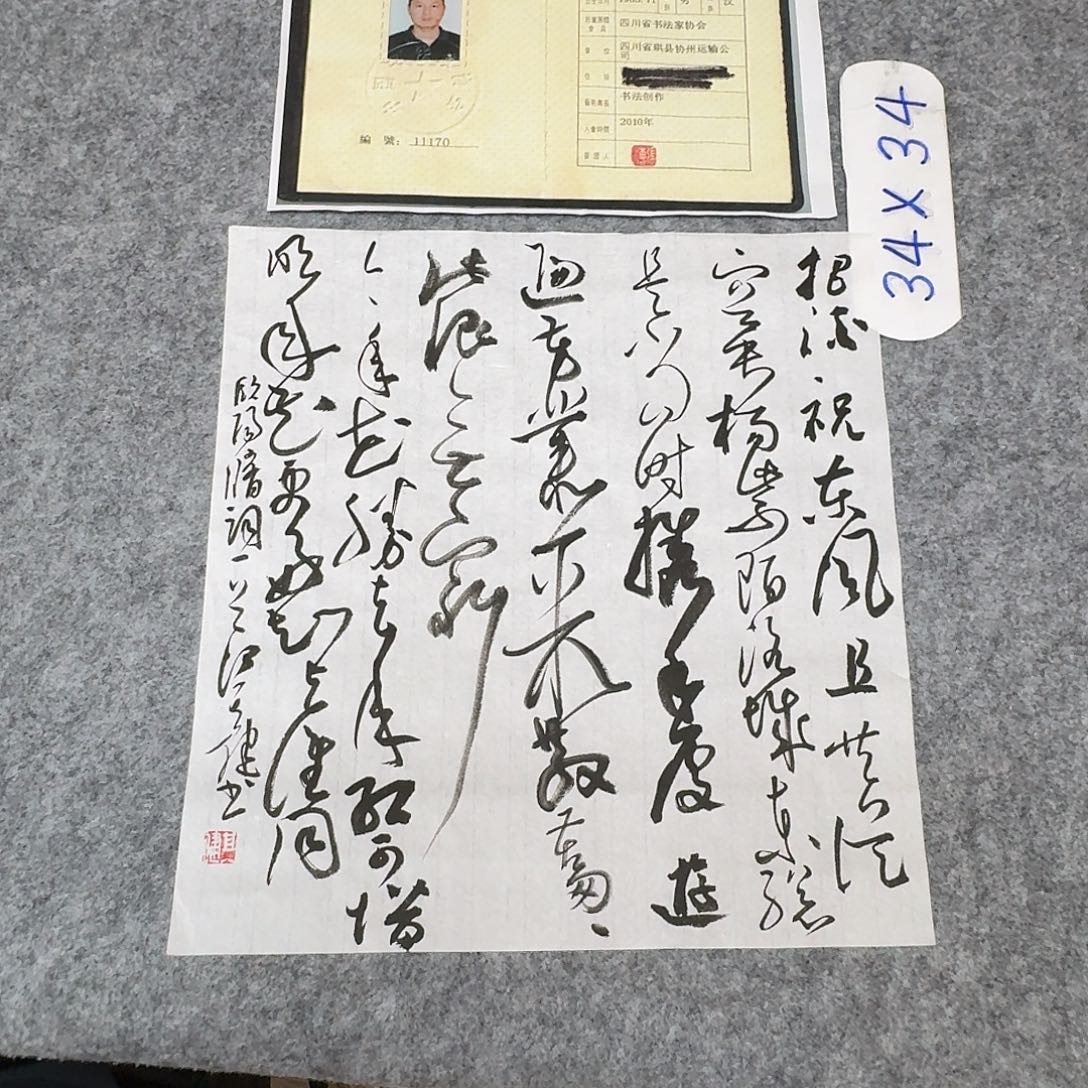 四川省书法家协会
四川省珙县协州运输公司
书法创作
入會時間 2010年
編號: 11170
34X34
把酒祝东风且共从
容垂杨紫陌洛城东总
是当时携手处游
遍芳丛聚散苦匆匆
此恨无穷
今年花胜去年红可惜
明年花更好知与谁同
欧阳脩词一首